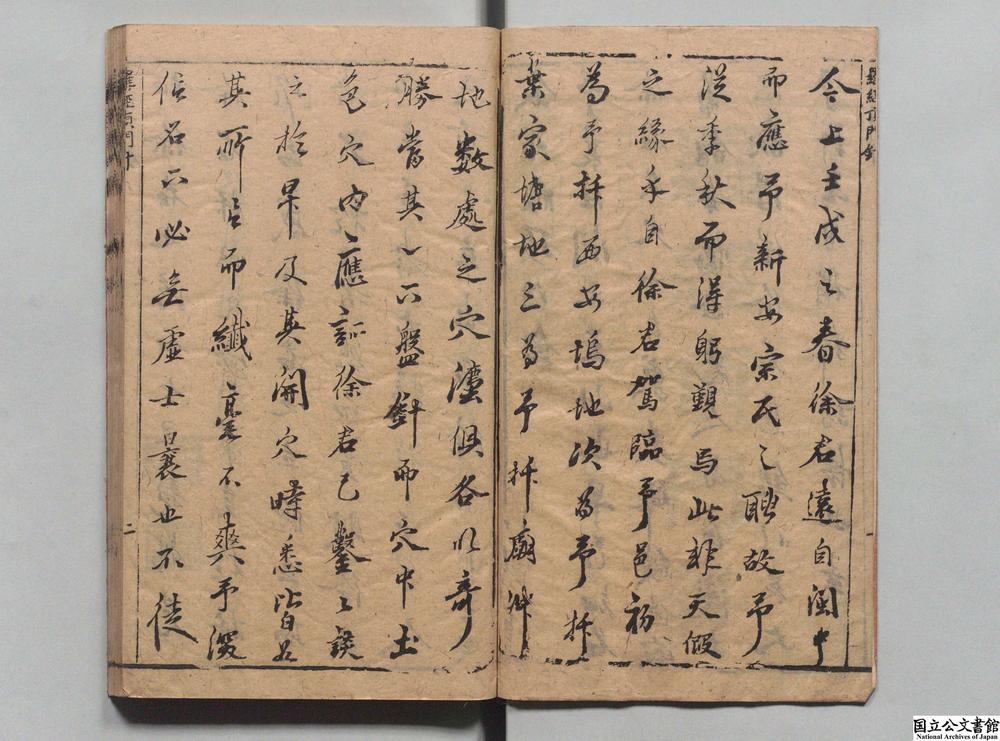 羅經頂門針
今上壬戌之春徐君遠自閩中
而應予新安宗氏之聘故予
從季秋而得躬覲焉此非天假
之緣乎自徐君駕臨予邑初
為予扦西安塢地次為予扦
葉家塘地三為予扦廟
地數處之穴灋俱各以奇
勝當其一下盤針而穴中土
色穴內應証徐君已鑿〻談
之於早及其開穴時悉皆如
其所言而纖毫不爽予深
信名下必無虛士曩也不徒
羅經頂門針
二
国立公文書館
National Archives of Japan